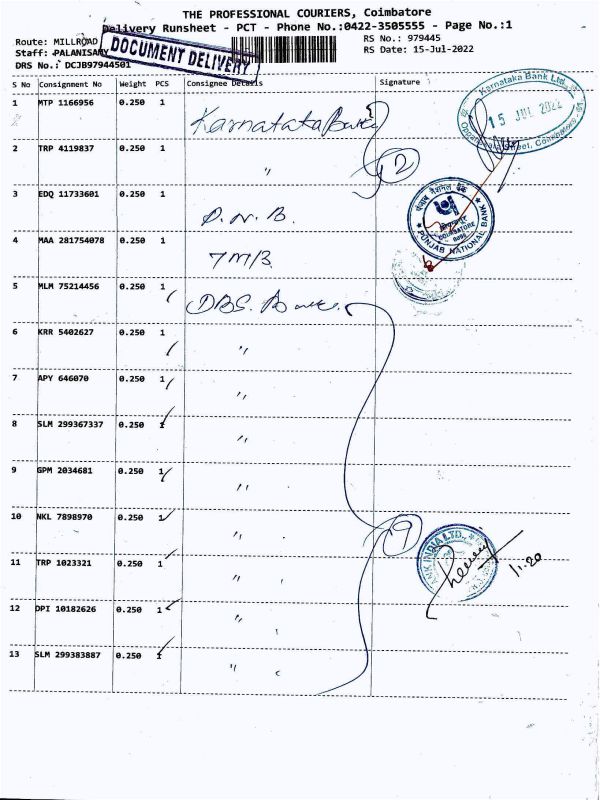 THE PROFESSIONAL COURIERS, Coimbatore
Delivery Runsheet - PCT - Phone No.:0422-3505555 - Page No.:1
Route: MILLROAD RS No.: 979445
Staff: PALANISAMY RS Date: 15-Jul-2022
DRS No.: DCJB97944501
DOCUMENT DELIVERY
S No Consignment No Weight PCS Consignee Details Signature
1 MTP 1166956 0.250 1 Karnataka Bank
2 TRP 4119837 0.250 1 "
2
3 EDQ 11733601 0.250 1 P.N.B.
4 MAA 281754078 0.250 1 TMB
5 MLM 75214456 0.250 1 DBS. Bank
6 KRR 5402627 0.250 1 "
7 APY 646070 0.250 1 "
8 SLM 299367337 0.250 1 "
9 GPM 2034681 0.250 1 "
10 NKL 7898970 0.250 1 "
9
11 TRP 1023321 0.250 1 "
12 DPI 10182626 0.250 1 "
13 SLM 299383887 0.250 1 "
Karnataka Bank Ltd.
15 JUL 2022
Oppanakara Street, Coimbatore
पंजाब नैशनल बैंक
COIMBATORE
PUNJAB NATIONAL BANK
BANK INDIA LTD.
11.20